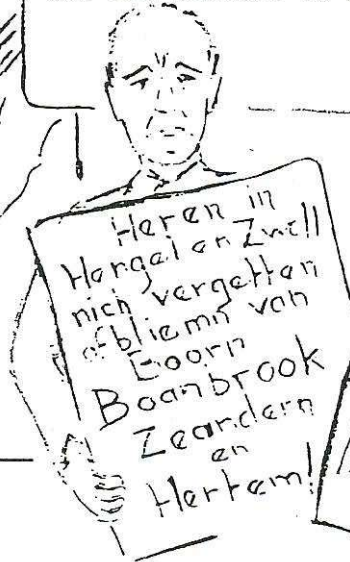 Heren in
Hengel en Zwöll
nich vergetten
ofbliemn van
Goorn
Boanbrook
Zeandern
en
Hertem!